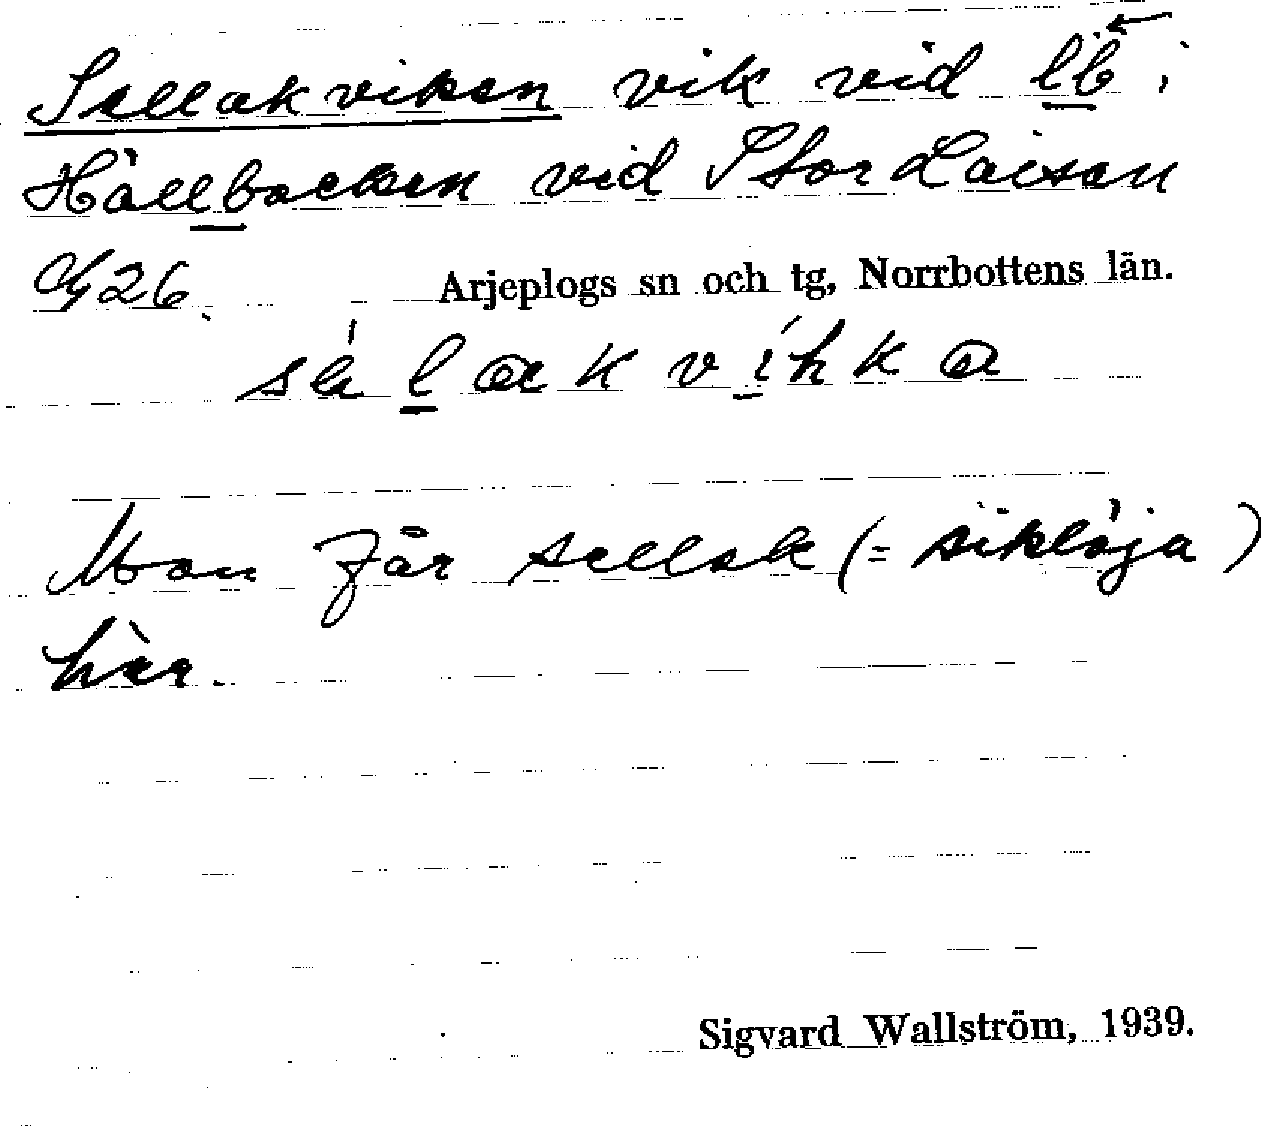 Sellakviken vik vid lb i
Hällbacken vid Stor Laisan
26 Arjeplogs sn och tg, Norrbottens län.
Man får sellak (= siklöja)
här.
Sigvard Wallström, 1939.